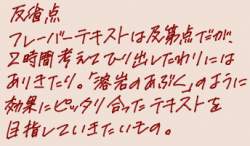 反省点
フレーバーテキストは及第点だが、
2時間考えてひり出したわりには
ありきたり。「溶岩のあぶく」のように
効果にピッタリ合ったテキストを
目指していきたいもの。